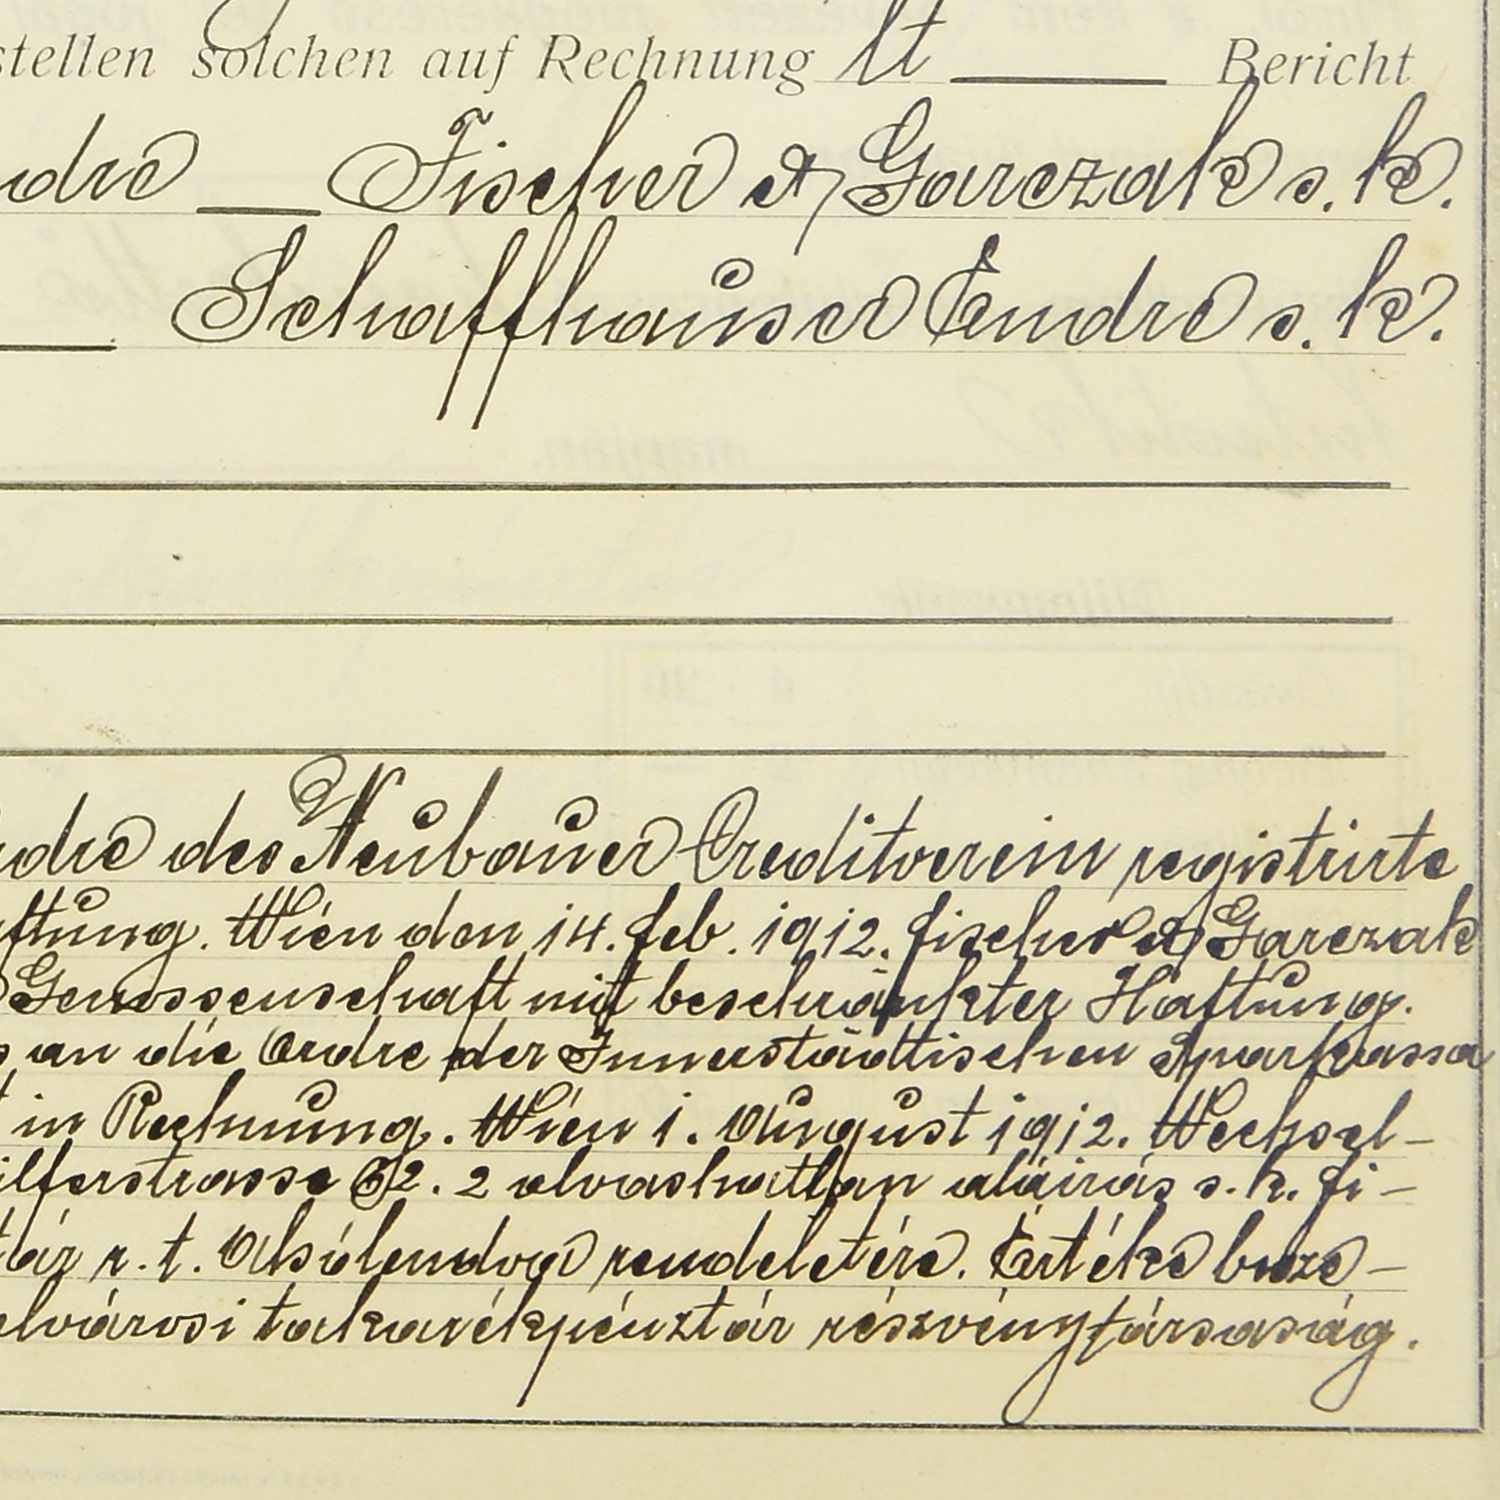 stellen solchen auf Rechnung lt Bericht
Fischer & Garczak s. k.
Schaffhauser Endre s. k.
des Neubauer Creditverein registrirte
Wien den 14. feb. 1912. fischer & Garczak
Genossenschaft mit beschränkter Haftung.
an die Ordre der Innerstädtischen Sparkassa
in Rechnung. Wien 1. August 1912. Wechsel-
62. 2 olvashatlan aláirás s. k. fi-
r. t. Alsólendva rendeletére. Értéke besze-
takarékpénztár részvénytársaság.